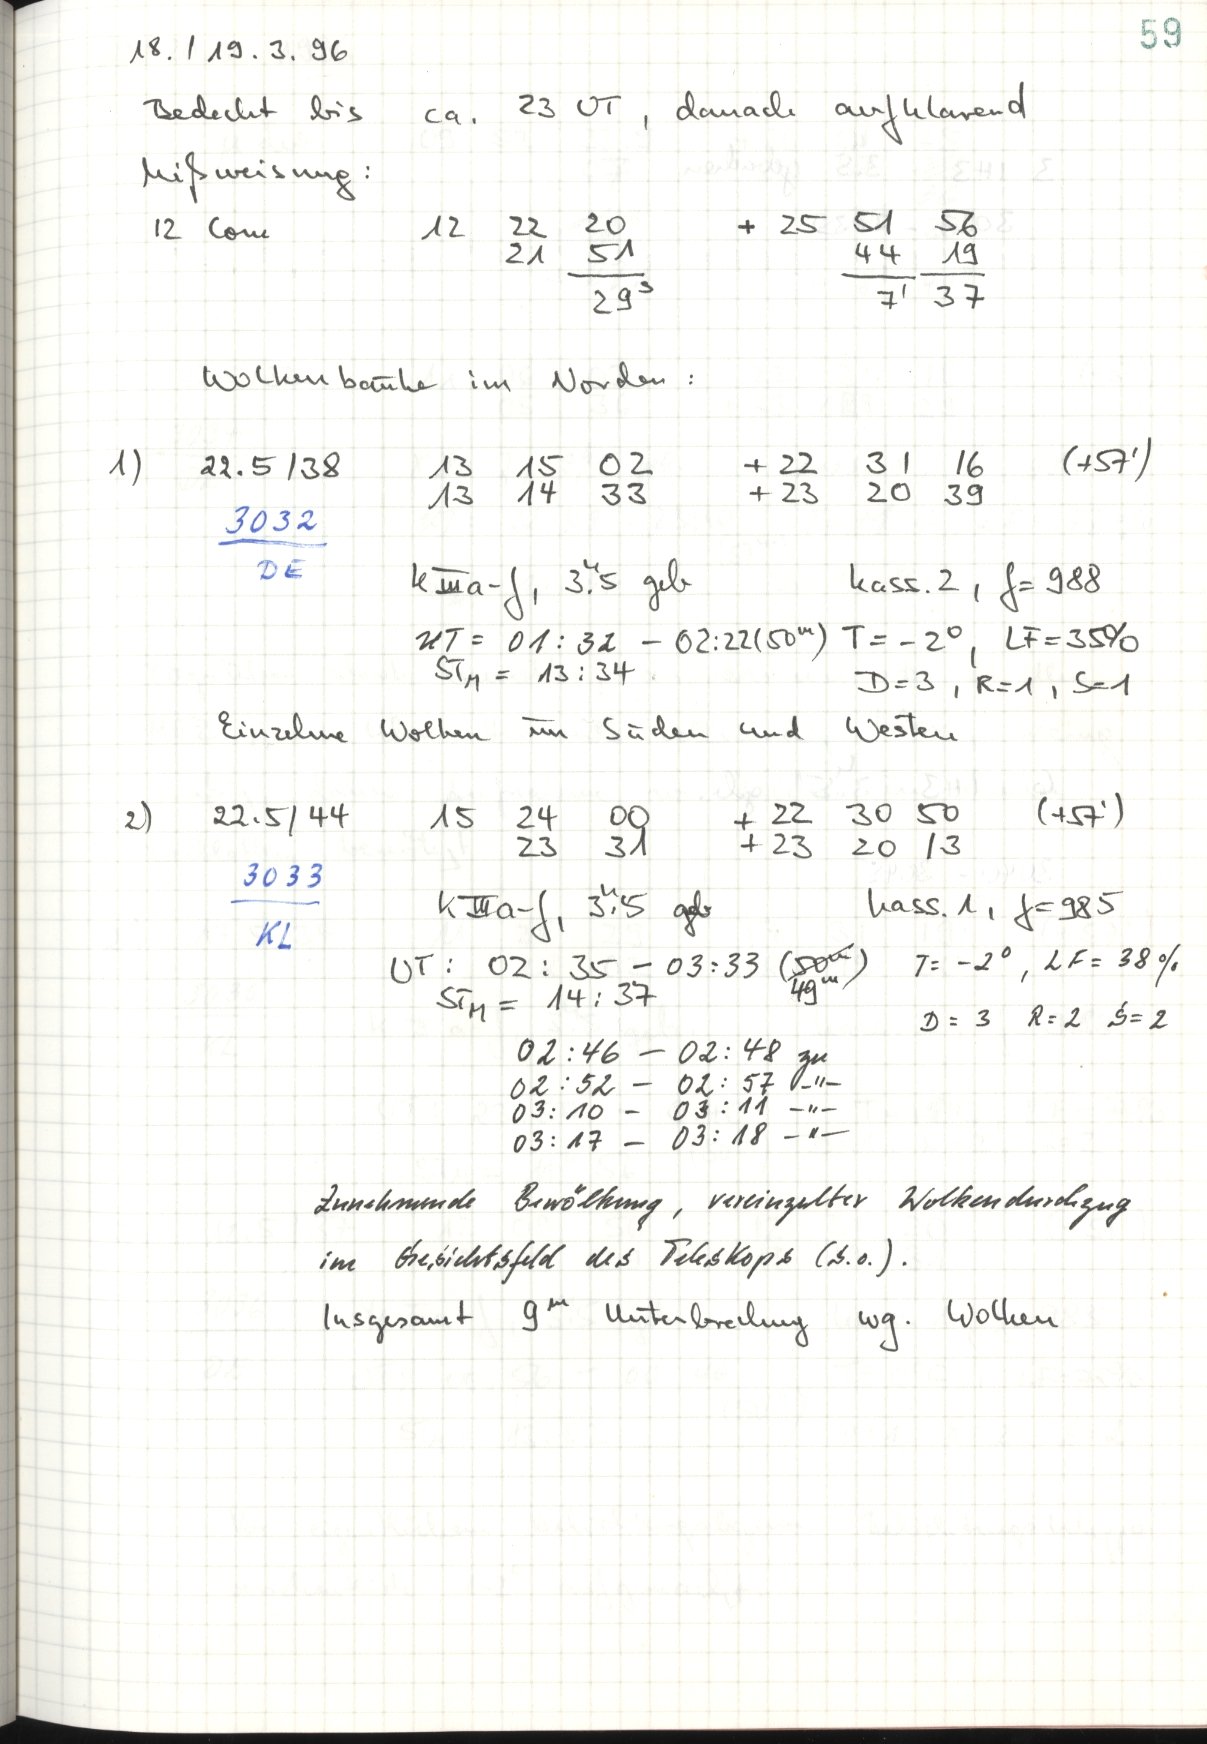 59
18./19.3.96
Bedeckt bis ca. 23 UT, danach aufklarend
Mißweisung:
12 Com 12 22 20 + 25 51 56
21 51 44 19
29ˢ 7' 37
Wolkenbänke im Norden:
1) 22.5/38 13 15 02 + 22 31 16 (+57')
13 14 33 + 23 20 39
3032
DE
KIIIa-f, 3.ᵐ5 geb Kass. 2, f=988
UT = 01:32 – 02:22 (50ᵐ) T = -2°, LF=35%
STM = 13:34 D=3, R=1, S=1
Einzelne Wolken im Süden und Westen
2) 22.5/44 15 24 00 + 22 30 50 (+57')
23 31 + 23 20 13
3033
KL
KIIIa-f, 3.ᵐ5 geb Kass. 1, f=985
UT: 02:35 – 03:33 (50ᵐ) T= -2°, LF= 38%
49ᵐ
STM = 14:37 D = 3 R=2 S=2
02:46 – 02:48 zu
02:52 – 02:57 -"-
03:10 – 03:11 -"-
03:17 – 03:18 -"-
Zunehmende Bewölkung, vereinzelter Wolkendurchzug
im Gesichtsfeld des Teleskops (s.o.).
Insgesamt 9ᵐ Unterbrechung wg. Wolken